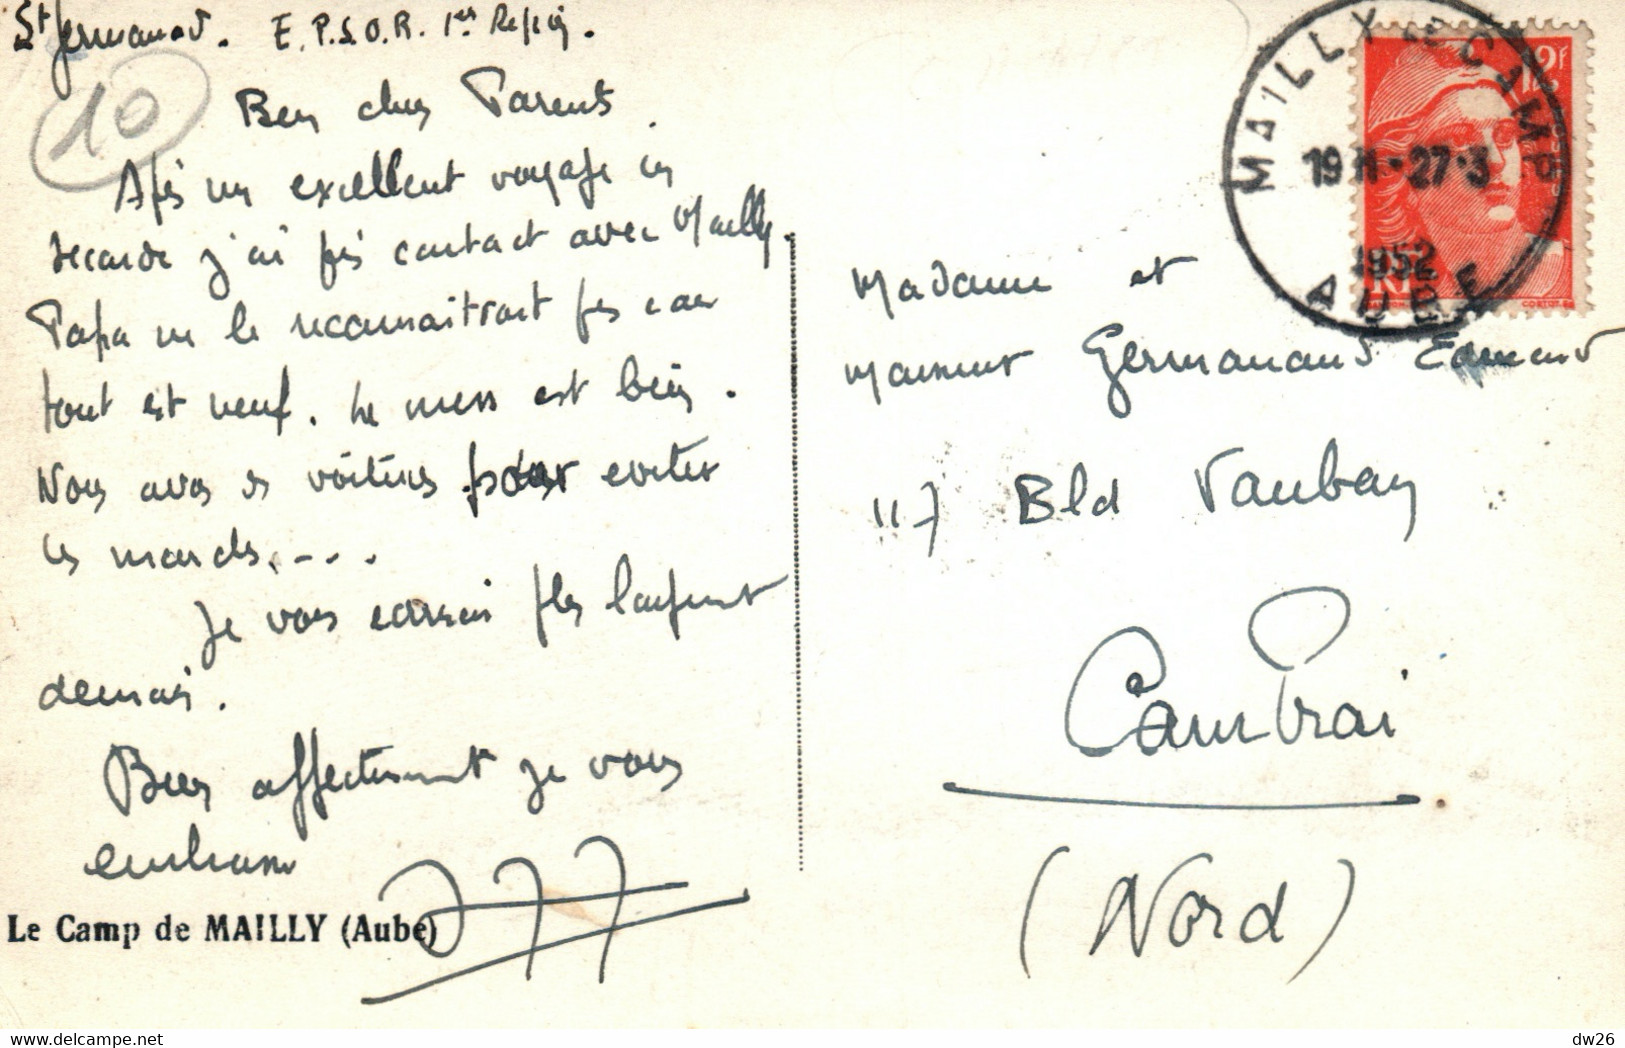 St Germanaud. E.P.S.O.R. 1er
10
Bien chers Parents.
Après un excellent voyage en
seconde j'ai pris contact avec Mailly.
Papa ne le reconnaitrait pas car
tout est neuf. Le mess est bien.
Nous avons des voitures pour eviter
les marches....
Je vous écrirai plus longuement
demain.
Bien affectueusement je vous
embrasse
Le Camp de MAILLY (Aube)
MAILLY LE CAMP
19 H - 27-3
1952
AUBE
12F
RF
Madame et
Monsieur Germanaud Edmond
117 Bld Vauban
Cambrai
(Nord)
dw26